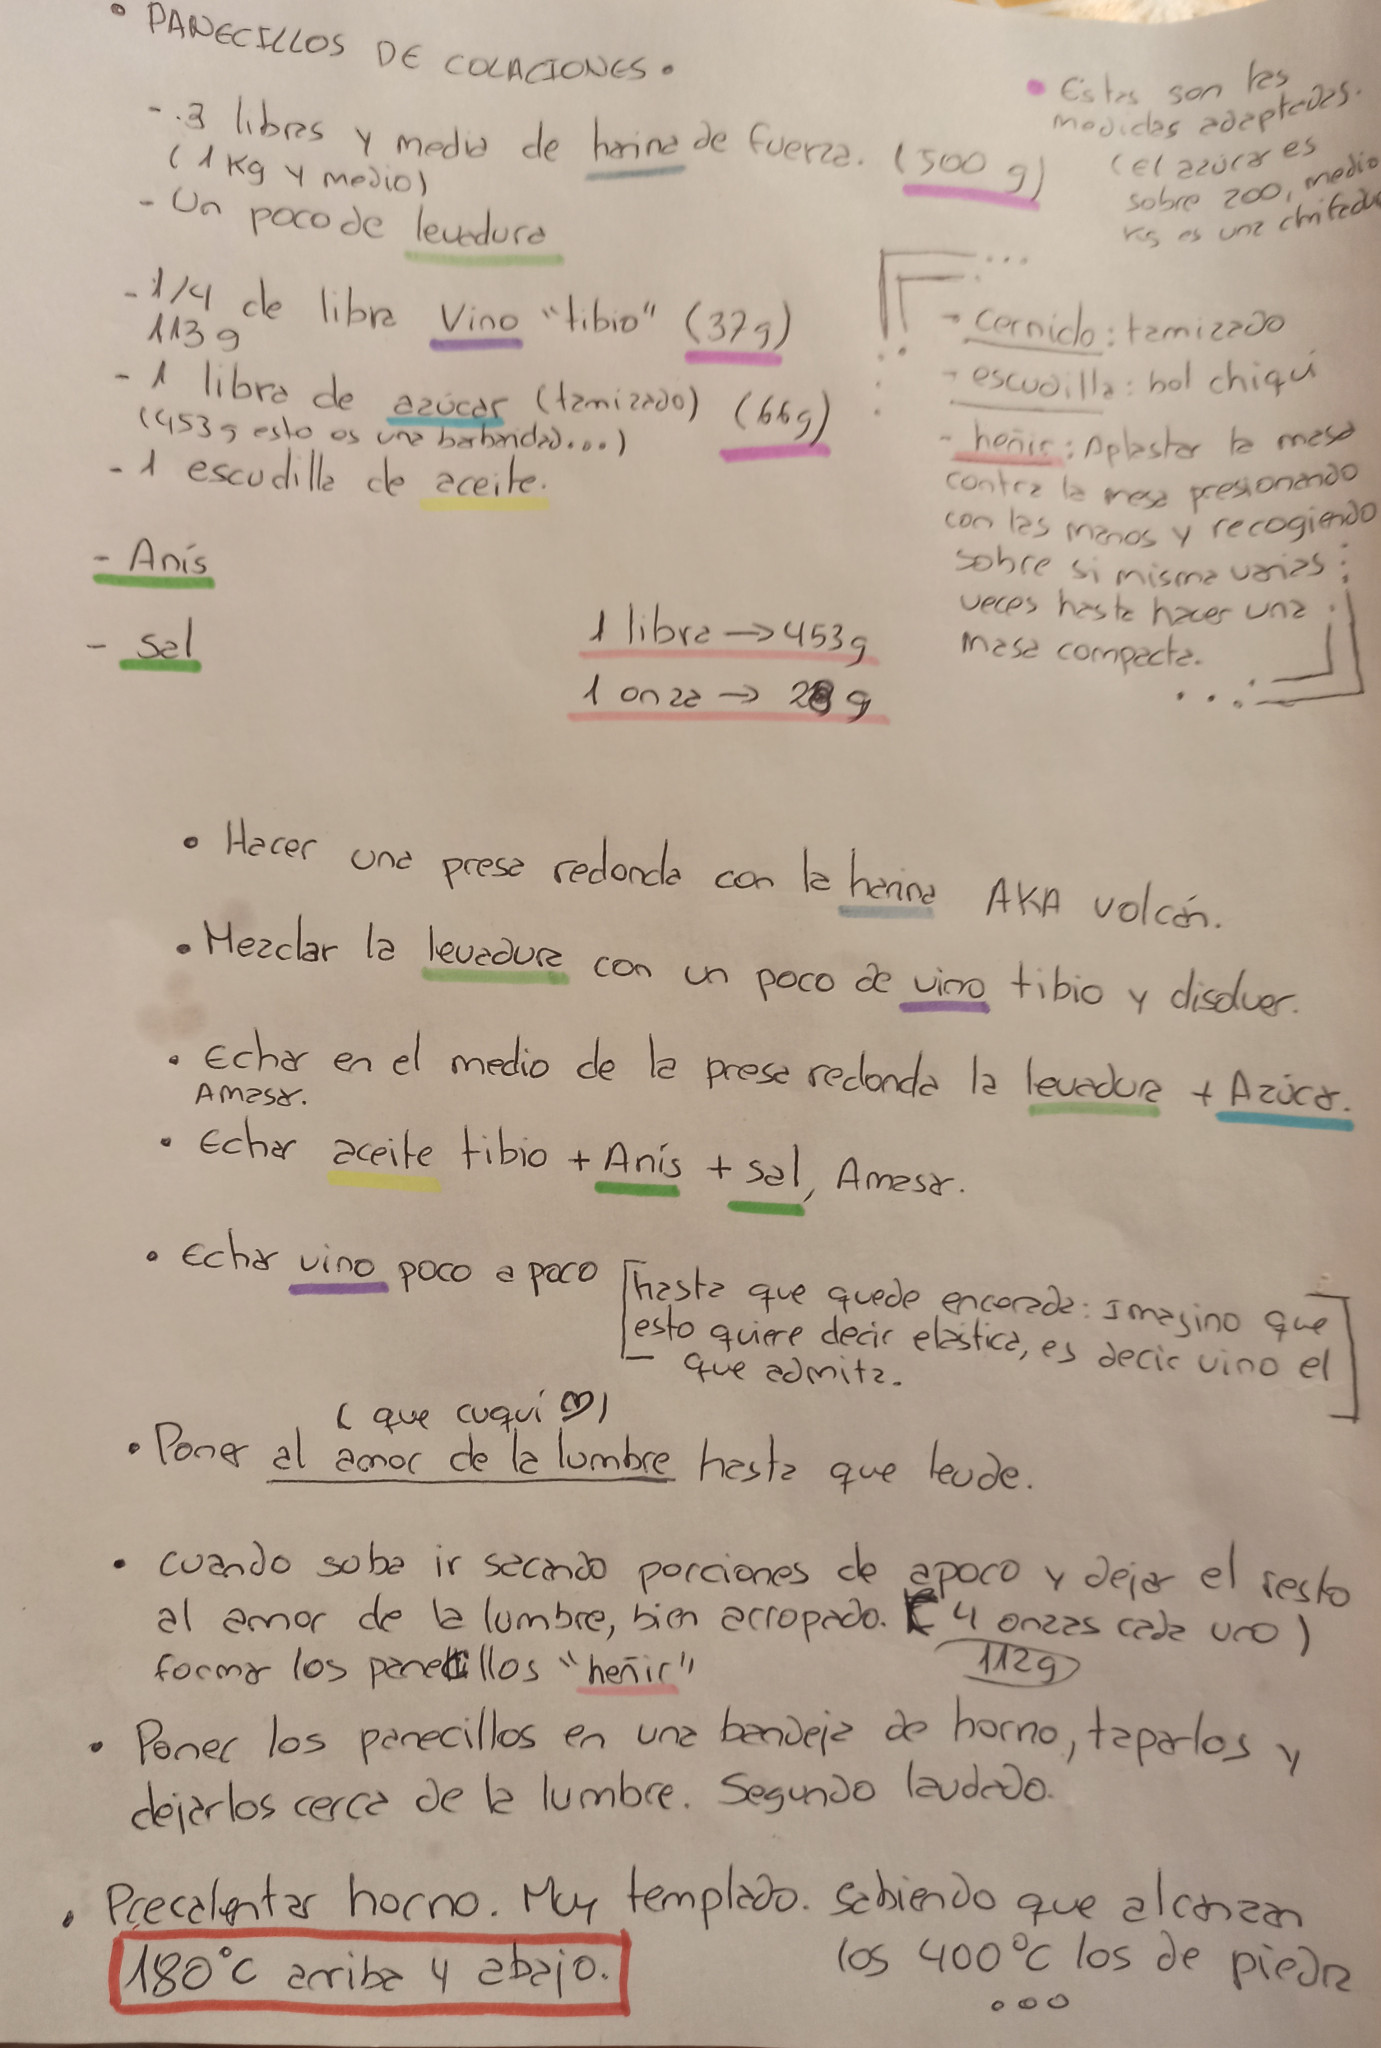 • PANECILLOS DE COLACIONES.
- 3 libras y media de harina de fuerza. (500 g)
(1 Kg y medio)
- Un poco de levadura
- 1/4 de libra Vino "tibio" (37g)
113 g
- 1 libra de azúcar (tamizado) (66g)
(453 g esto es una barbaridad...)
- 1 escudilla de aceite.
- Anís
- sal
1 libra → 453g
1 onza → 28 g
• Estas son las
medidas adaptadas.
(el azúcar es
sobre 200, medio
kg es una chifladu
- cernido: tamizado
- escudilla: bol chiqui
- heñir: Aplastar la masa
contra la mesa presionando
con las manos y recogiendo
sobre si misma varias
veces hasta hacer una
masa compacta.
• Hacer una presa redonda con la harina AKA volcán.
• Mezclar la levadura con un poco de vino tibio y disolver.
• Echar en el medio de la presa redonda la levadura + Azúcar.
Amasar.
• Echar aceite tibio + Anís + sal, Amasar.
• Echar vino poco a poco [hasta que quede encerada: Imagino que
esto quiere decir elástica, es decir vino el
que admita.]
(que cuqui ♡)
• Poner al amor de la lumbre hasta que leude.
• cuando suba ir sacando porciones de apoco y dejar el resto
al amor de la lumbre, bien arropado. (4 onzas cada uno)
112g
formar los panecillos "heñir"
• Poner los panecillos en una bandeja de horno, taparlos y
dejarlos cerca de la lumbre. Segundo laudado.
• Precalentar horno. Muy templado. sabiendo que alcanzan
los 400°C los de piedra
...
180°C arriba y abajo.